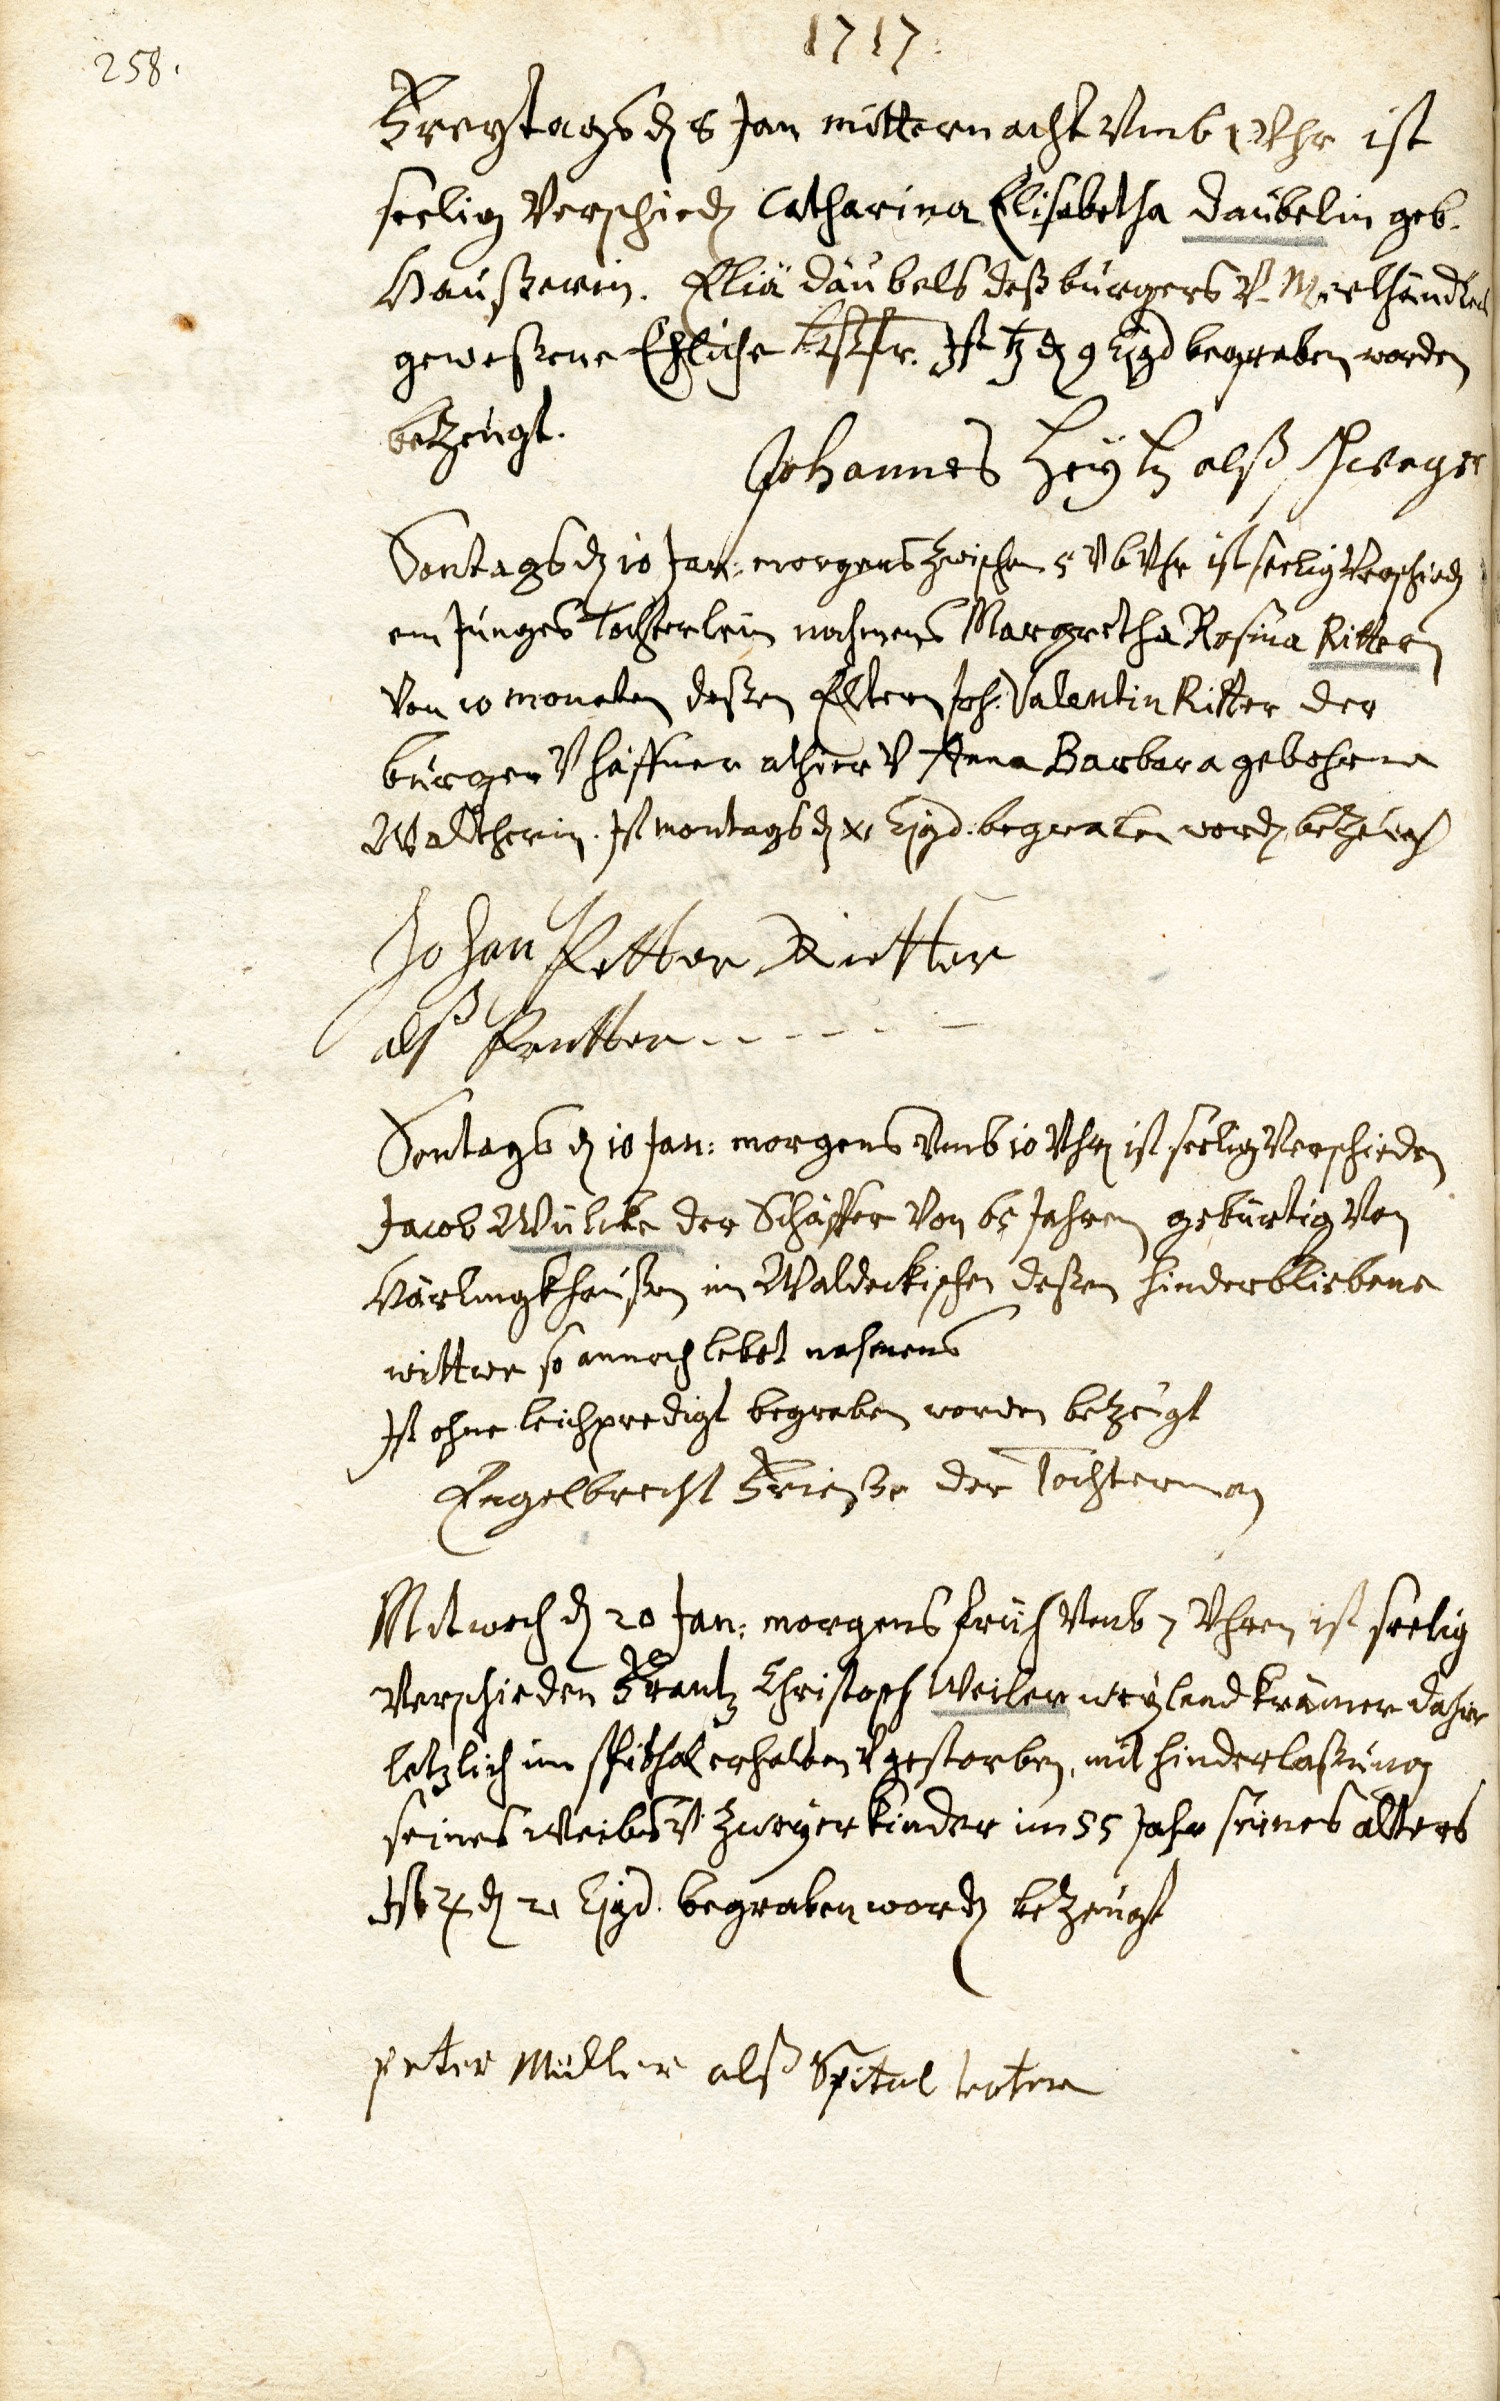 1717.
258.
Freytags d 8 Jan mitternacht Vmb 1 Vhr ist
seelig Verschied Catharina Elisabetha Daübelin geb.
Haußerin. Eliä Däubels deß bürgers V. Meelhändlers
geweßene Ehliche Haußfr. Ist ♄ d 9 Ejgd begraben worden
betzeugt.
Johannes Heyl alß schwager
Sontags d 10 Jan. morgens zwischen 5 V 6 Vhr ist seelig Verschied
ein Junges Töchterlein nahmens Margretha Rosina Rittern
Von 10 monaten deßen Eltern Joh. Valentin Ritter der
bürger V häffner alhier V Anna Barbara gebohrne
Waltherin. Ist montags d 11 Ejgd. begraben word betzeugt
Johan Petter Rietter
alß Pettter
Sontags d 10 Jan: morgens Vmb 10 Vhr ist seelig Verschieden
Jacob Wülcke der Schäffer Von 65 Jahren gebürtig Von
Hörlingkhaußen im Waldeckischen deßen hinderbliebene
wittwe so annoch lebet nahmens
Ist ohne leichpredigt begraben worden betzeugt
Engelbrecht Frieße der Tochterman
Mitwoch d 20 Jan: morgens früh Vmb 7 Vhren ist seelig
Verschieden Frantz Christoph Weiler weyland krämer dahier
letzlich im spithal erhalten V gestorben, mit hinderlaßung
seines Weibs V. zweyer Kinder im 55 Jahr seines alters
Ist ♃ d 21 Ejgd. begraben word betzeugt
peter Müller alß Spital